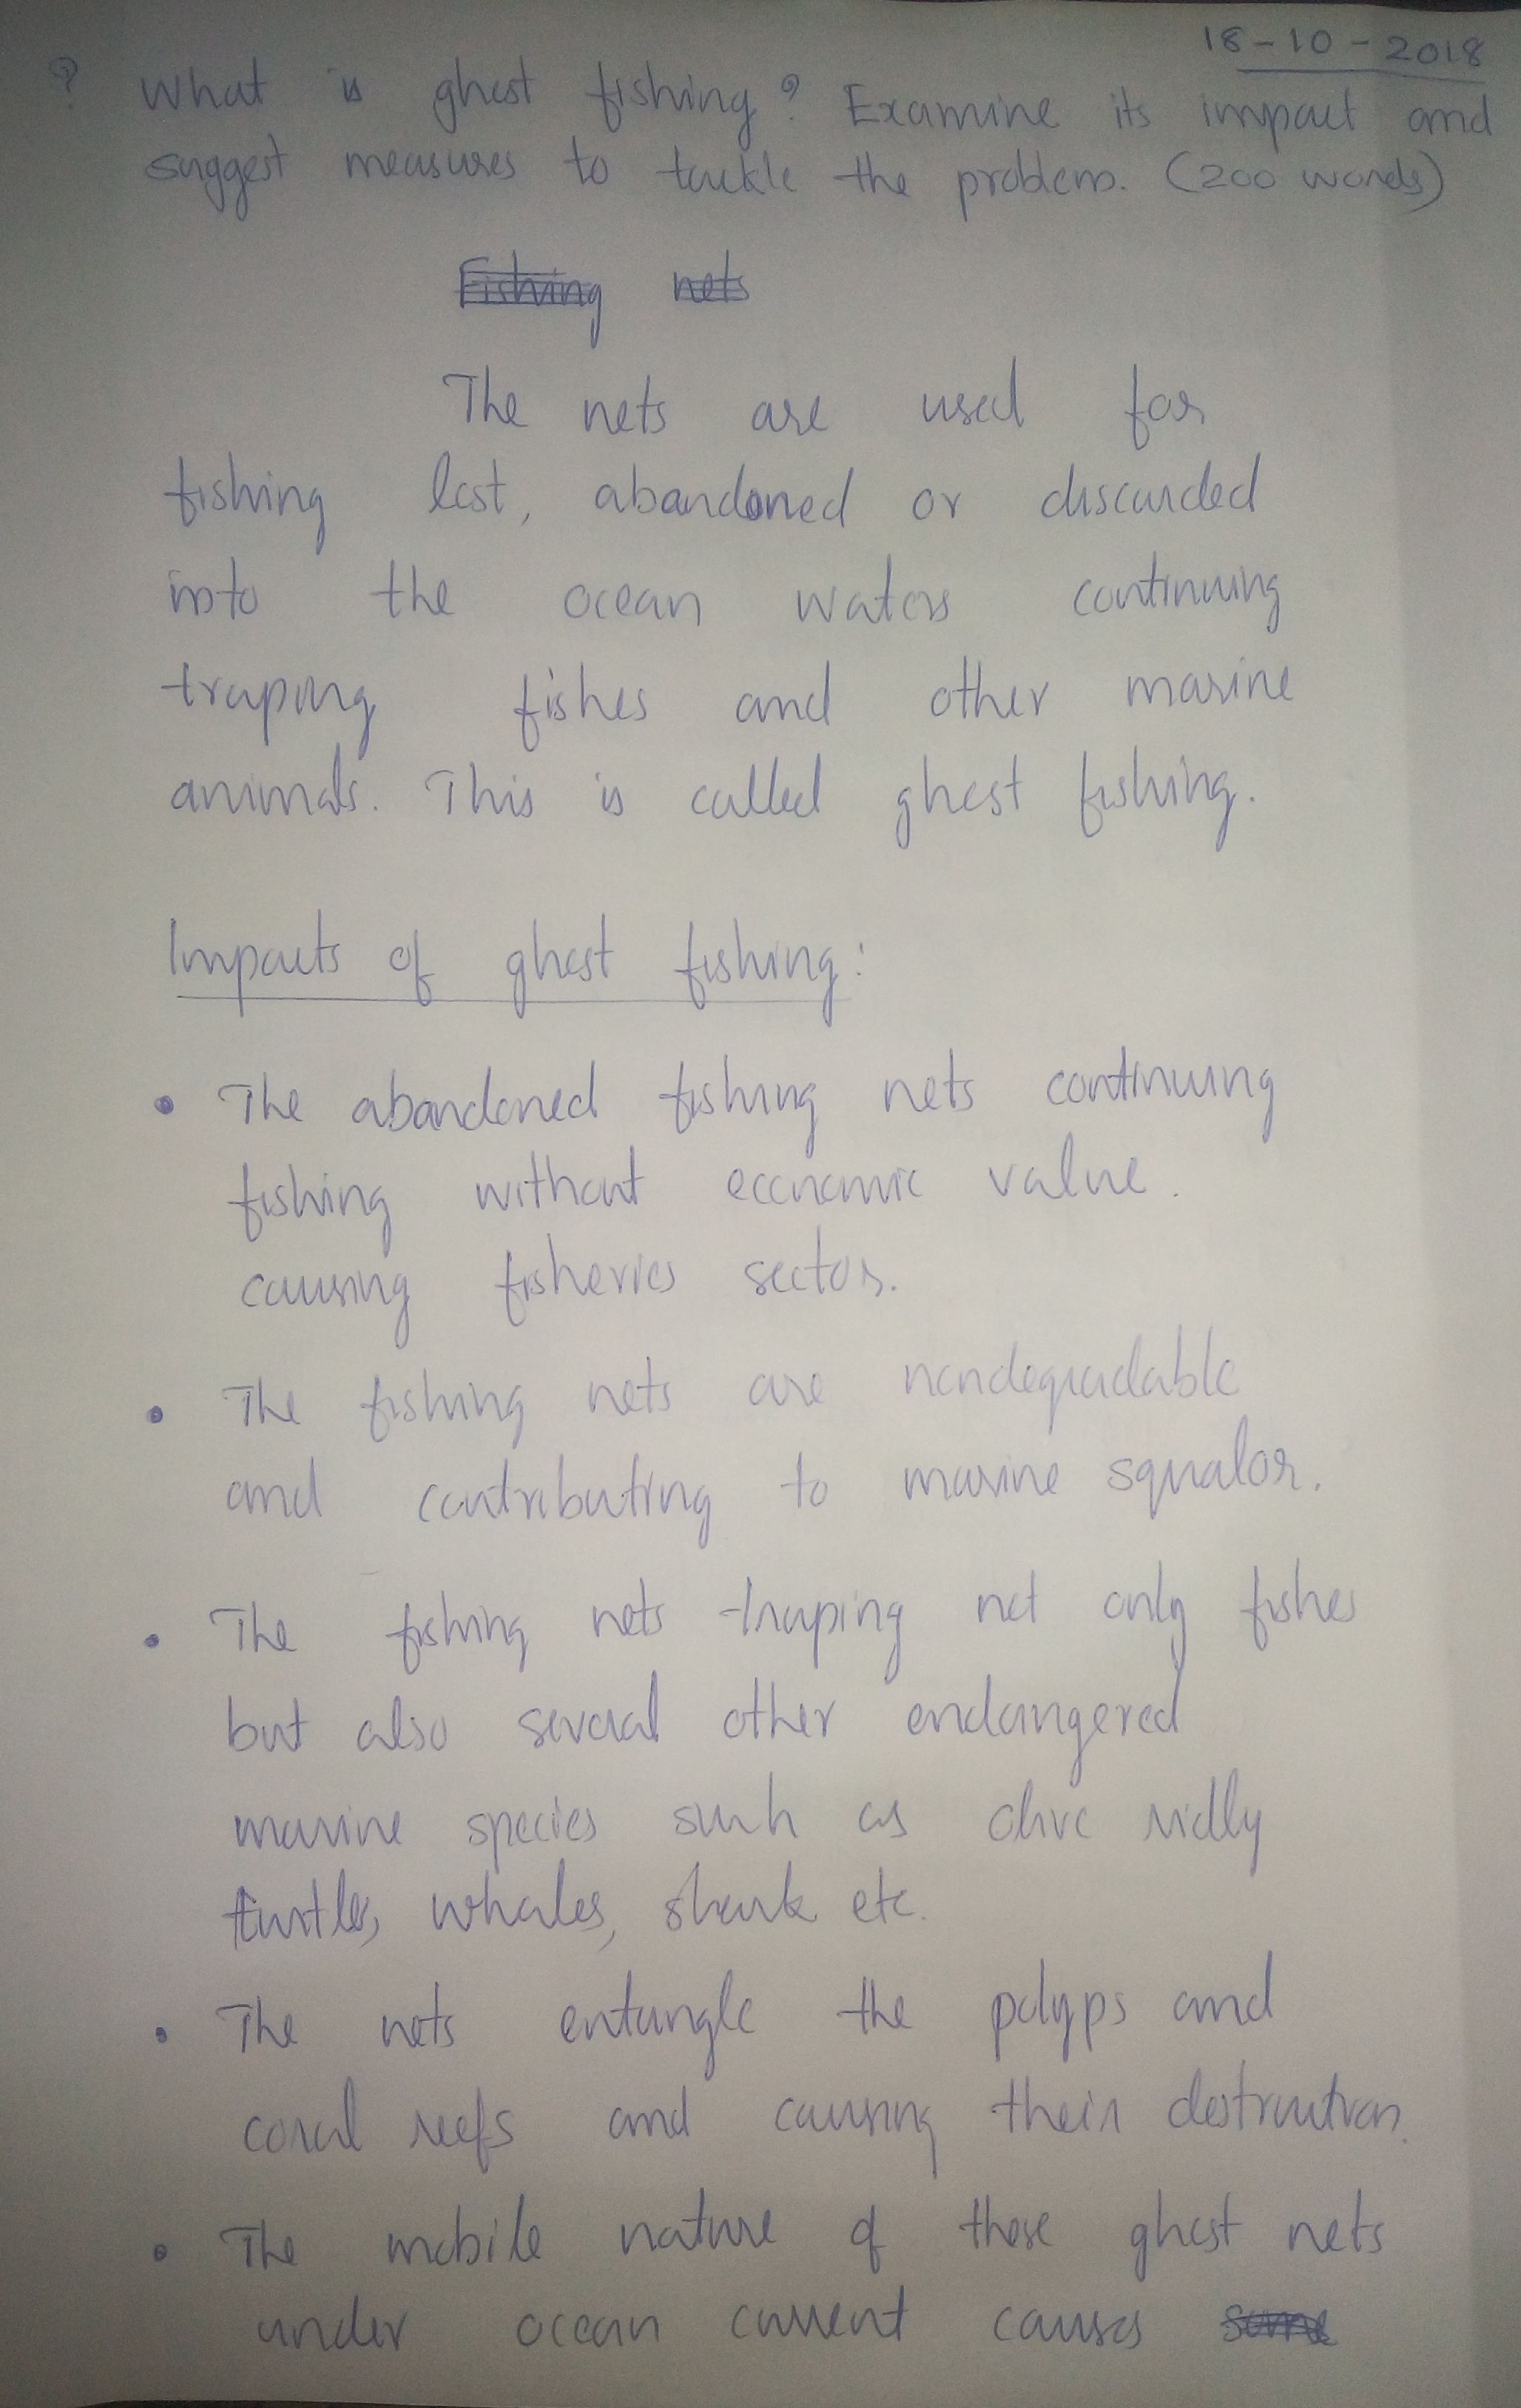 18-10-2018
? What is ghost fishing? Examine its impact and
suggest measures to tackle the problem. (200 words)
Fishing nets
The nets are used for
fishing lost, abandoned or discarded
into the ocean waters continuing
traping fishes and other marine
animals. This is called ghost fishing.
Impacts of ghost fishing:
• The abandoned fishing nets continuing
fishing without economic value.
causing fisheries sector.
• The fishing nets are nondegradable
and contributing to marine squalor.
• The fishing nets traping not only fishes
but also several other endangered
marine species such as olive ridly
turtles, whales, shark etc.
• The nets entangle the polyps and
coral reefs and causing their destruction.
• The mobile nature of these ghost nets
under ocean current causes some